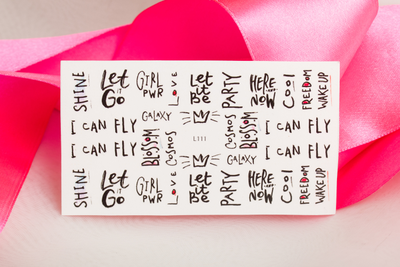 SHINE
Let
it
Go
GIRL
PWR
LOVE
Let
it
Be
PARTY
HERE
and
NOW
Cool
FREEDOM
WAKE UP
I CAN FLY
GALAXY
BLOSSOM
COSMOS
L111
COSMOS
BLOSSOM
GALAXY
I CAN FLY
I CAN FLY
I CAN FLY
SHINE
Let
it
Go
GIRL
PWR
LOVE
Let
it
Be
PARTY
HERE
and
NOW
Cool
FREEDOM
WAKE UP